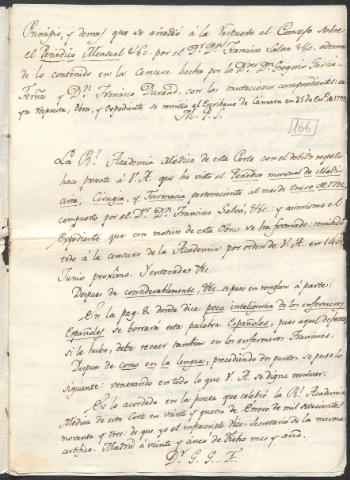 Principio, y demas que se añadió á la Respuesta al Consejo sobre
el Periódico Mensual &c. por el Dr. Dn. Francisco Salvá &c. ademas
de lo contenido en la Censura hecha por los Drs. Dn. Gregorio Garcia
Ferñz y Dn. Francisco Durand, con las mutaciones correspondientes: cu
ya respuesta, Obra, y expediente se remitió al Escribano de Camara en 25 de En.o de 1793
M. P. S.
166
La Rl. Academia Médica de esta Corte con el debido respeto
hace presente á V. A. que ha visto el Periódico mensual de Medi-
cina, Cirugia, y Farmacia perteneciente al mes de Enero de
compuesto por el Dr. Dn. Francisco Salvá, &c: y asimismo el
Expediente que con motivo de esta Obra se ha formado: remitido
todo á la censura de la Academia por orden de V. A. en 14 de
Junio proxîmo. Y enterada &c.
Despues de considerablemente, &c. se puso en renglon á parte:
En la pag. 8 donde dice poca inteligencia de los enfermeros
Españoles se borrará esta palabra Españoles, pues aquel defecto
si le hubo, debe recaer tambien en los enfermeros Franceses.
Despues de como en la lengua, precediendo dos puntos, se puso lo
siguiente: venerando en todo lo que V. A. se digne resolver.
Es lo acordado en la junta que celebró la Rl. Academia
Médica de esta Corte en veinte y quatro de Enero de mil setecientos
noventa y tres: de que yo el infrascrito Vice-Secretario de la misma
certifico. Madrid á veinte y cinco de dicho mes y año.
Dr. G. G. F.